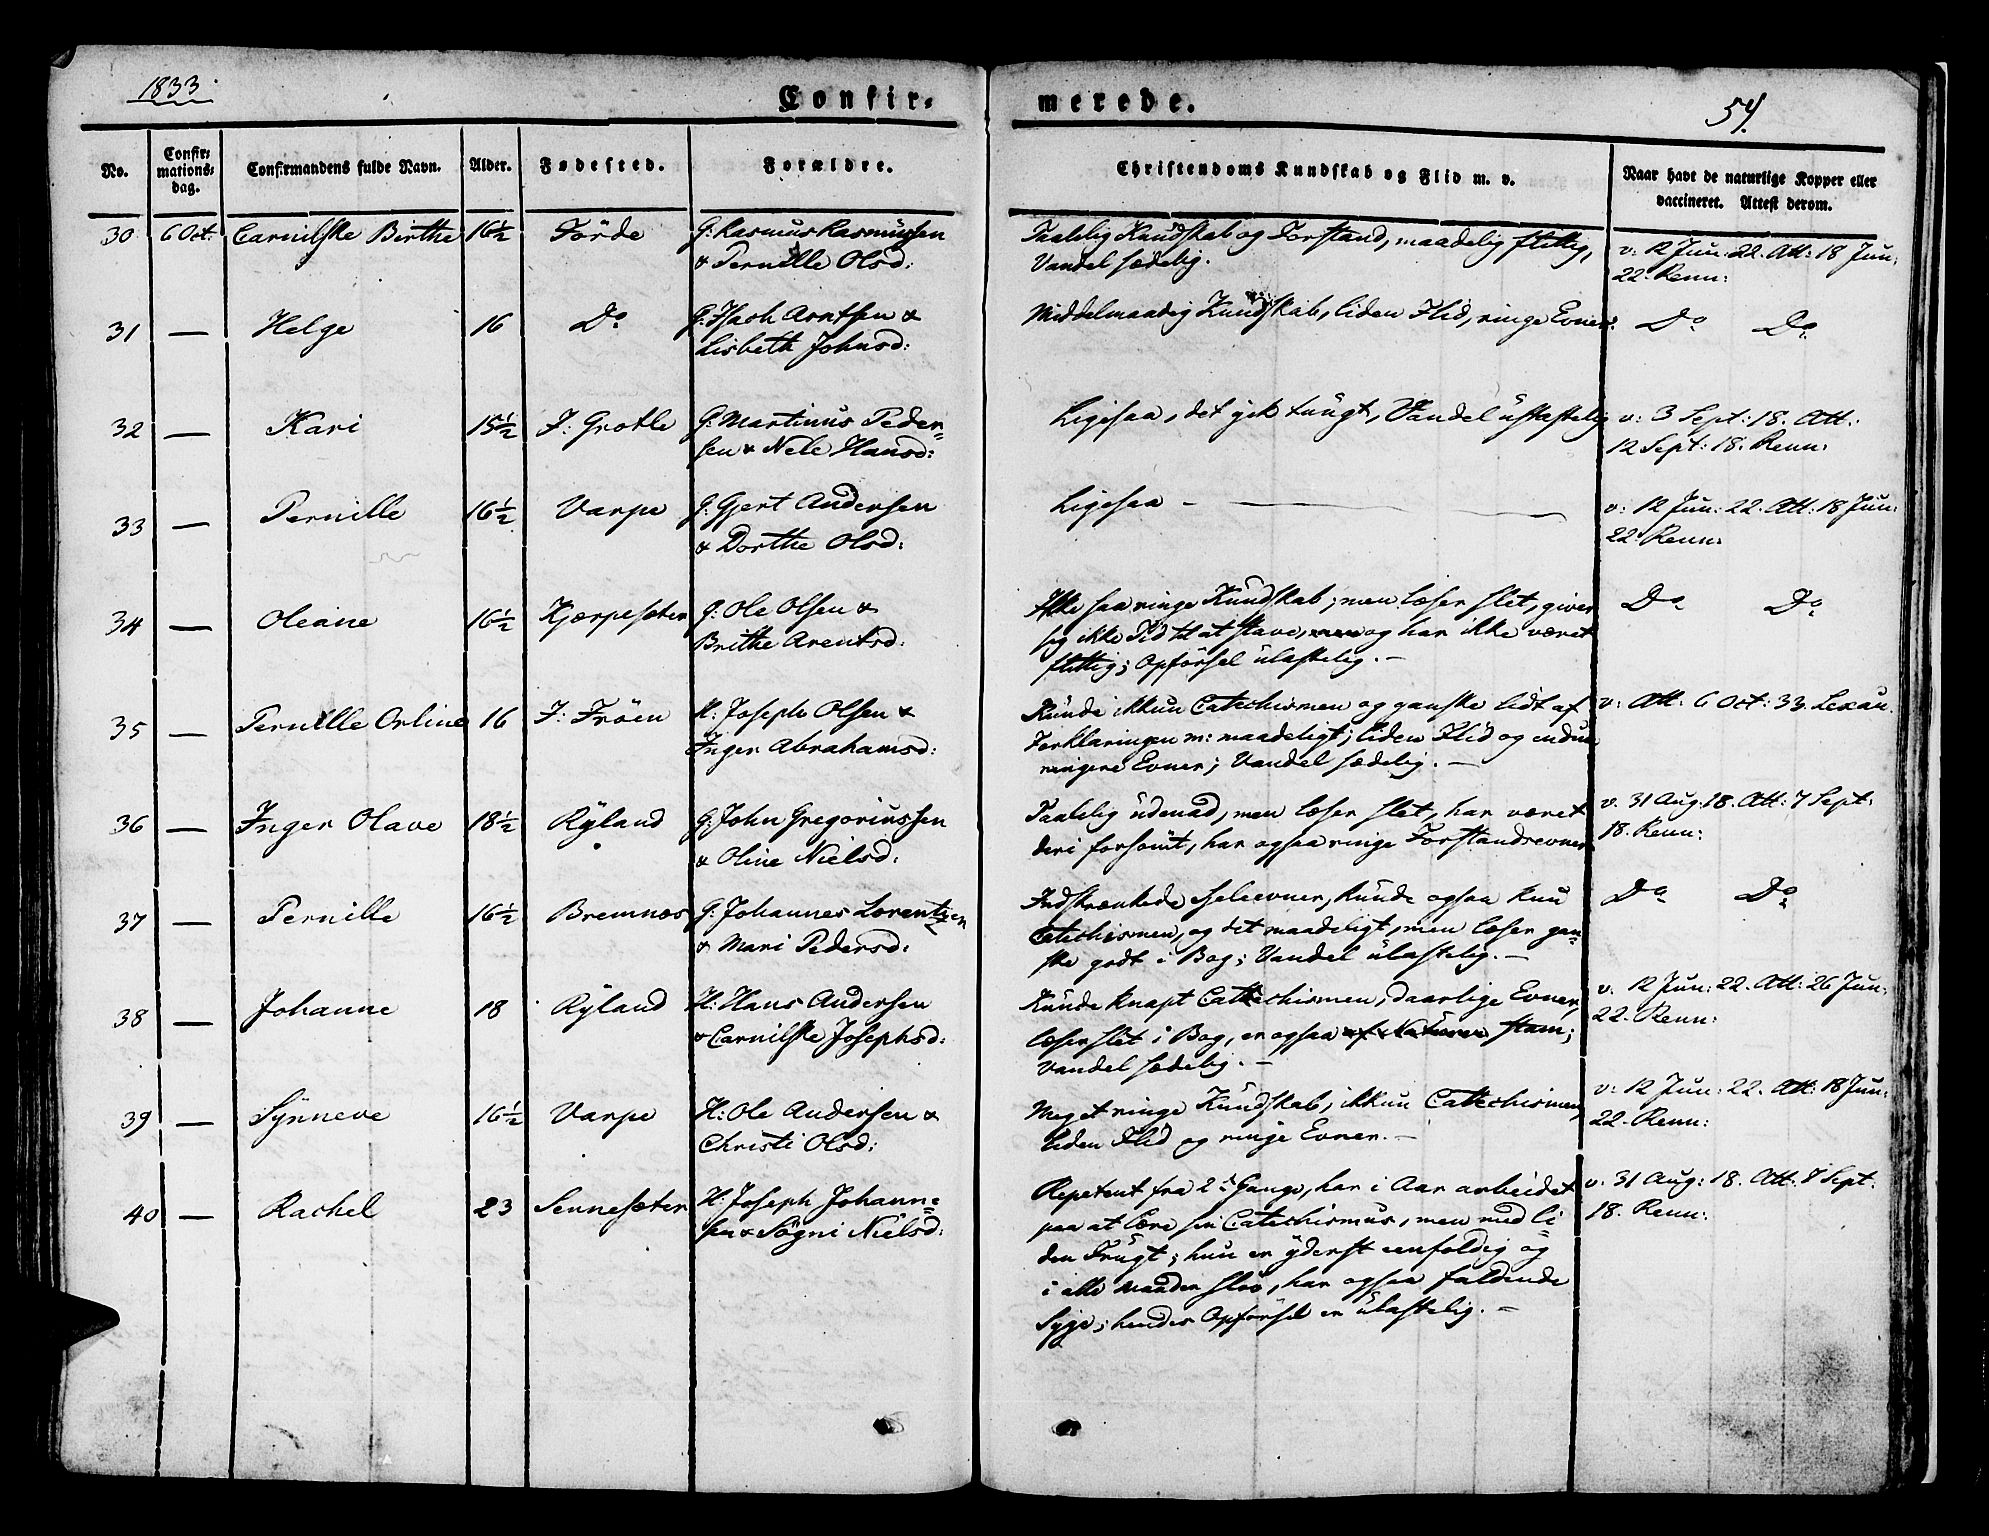 1833.
Confir-
merede.
54.
No.
Confir-
mations-
dag.
Confirmandens fulde Navn.
Alder.
Fødested.
Forældre.
Christendoms Kundskab og Flid m. v.
Naar havt de naturlige Kopper eller
vaccineret. Attest derom.
30 6 Oct: Carnilske Birthe 16½ Förde G: Rasmus Rasmussen
& Pernille Olsd:
Taalelig Kundskab og Forstand, maadelig flittig,
Vandel sædelig.
v: 12 Jun: 22. Att: 18 Jun:
22. Renn:
31 — Helge 16 Do G: Isach Arntsen &
Lisbeth Johnsd:
Middelmaadig Kundskab, liden Flid, ringe Evner.
Do Do
32 — Kari 15½ I: Grotle G: Martinus Peder-
sen & Nele Hansd:
Ligesaa, det gik tungt, Vandel ustraffelig
v: 3 Sept: 18. Att:
12 Sept: 18. Renn:
33 — Pernille 16½ Varpe G: Gjert Andersen
& Dorthe Olsd:
Ligesaa —
v: 12 Jun: 22. Att: 18 Jun:
22. Renn:
34 — Oleane 16½ Kjærpesæter G: Ole Olsen &
Brithe Arentsd:
Ikke saa ringe Kundskab; men læser slet, giver
sig ikke Tid til at stave, og har ikke været
flittig; Opförsel ulastelig. —
Do Do
35 — Pernille Orline 16 I: Fröen H: Joseph Olsen &
Inger Abrahamsd:
Kunde ikkun Catechismen og ganske lidt af
Forklaringen m: maadeligt; liden Flid og endnu
ringere Evner; Vandel sædelig. —
v: Att: 6 Oct: 33. Lexau.
36 — Inger Olave 18½ Ryland G: John Gregoriussen
& Oline Nielsd:
Taalelig udenad, men læser slet, har været
deri forsömt, har ogsaa ringe Forstandsevner
v. 31 Aug: 18. Att: 7 Sept:
18. Renn:
37 — Pernille 16½ Bremnæs G: Johannes Lorentzen
& Mari Pedersd:
Indskrænkede Sjeleevner, kunde ogsaa kun
Catechismen, og det maadeligt, men læser gan-
ske godt i Bog; Vandel ulastelig. —
Do Do
38 — Johanne 18 Ryland H: Hans Andersen
& Carnilske Josephsd:
Kunde knapt Catechismen, daarlige Evner,
læser slet i Bog, er ogsaa af Naturen stam;
Vandel sædelig. —
v: 12 Jun: 22. Att: 26 Jun:
22. Renn:
39 — Synneve 16½ Varpe H: Ole Andersen &
Christi Olsd:
Meget ringe Kundskab, ikkun Catechismen,
liden Flid og ringe Evner. —
v: 12 Jun: 22. Att: 18 Jun:
22. Renn:
40 — Rachel 23 Sennesæter H: Joseph Johann-
sen & Sögni Nielsd:
Repetent fra 2 Gange, har i Aar arbeidet
paa at lære sin Catechismus, men med li-
den Frugt; hun er yderst eenfoldig og
i alle Maader slöv, har ogsaa faldende
Syge; hendes Opförsel er ulastelig. —
v: 31 Aug: 18. Att: 8 Sept:
18. Renn: